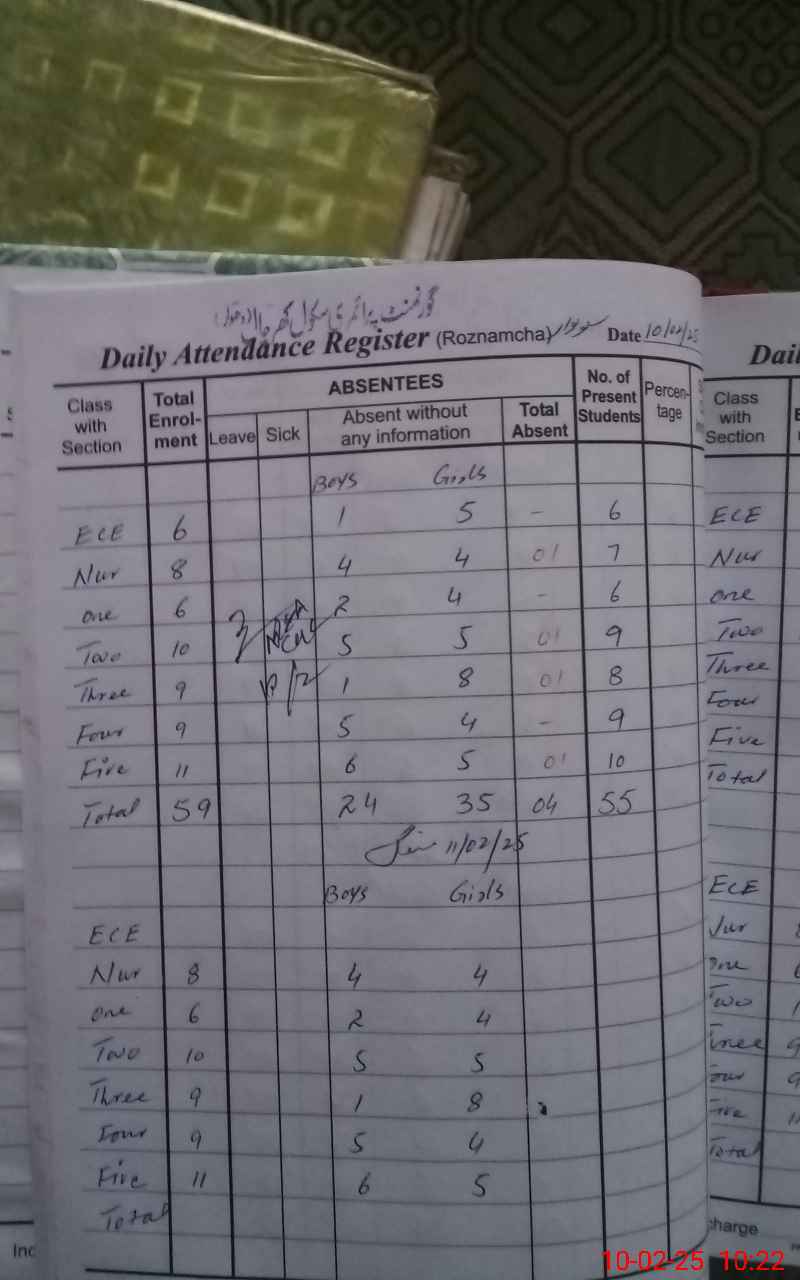 گورنمنٹ پرائمری سکول
Daily Attendance Register (Roznamcha) سوموار Date 10/02/25
Class with Section Total Enrol-ment ABSENTEES Leave Sick Absent without any information Total Absent No. of Present Students Percen-tage
Boys Girls
ECE 6 1 5 - 6
Nur 8 4 4 01 7
one 6 2 4 - 6
Two 10 5 5 01 9
Three 9 1 8 01 8
Four 9 5 4 - 9
Five 11 6 5 01 10
Total 59 24 35 04 55
11/02/25
Boys Girls
ECE
Nur 8 4 4
one 6 2 4
Two 10 5 5
Three 9 1 8
Four 9 5 4
Five 11 6 5
Total
Dail
Class with Section
ECE
Nur
one
Two
Three
Four
Five
Total
ECE
Nur
one
Two
Three
Four
Five
Total
charge
Inc
10-02-25 10:22